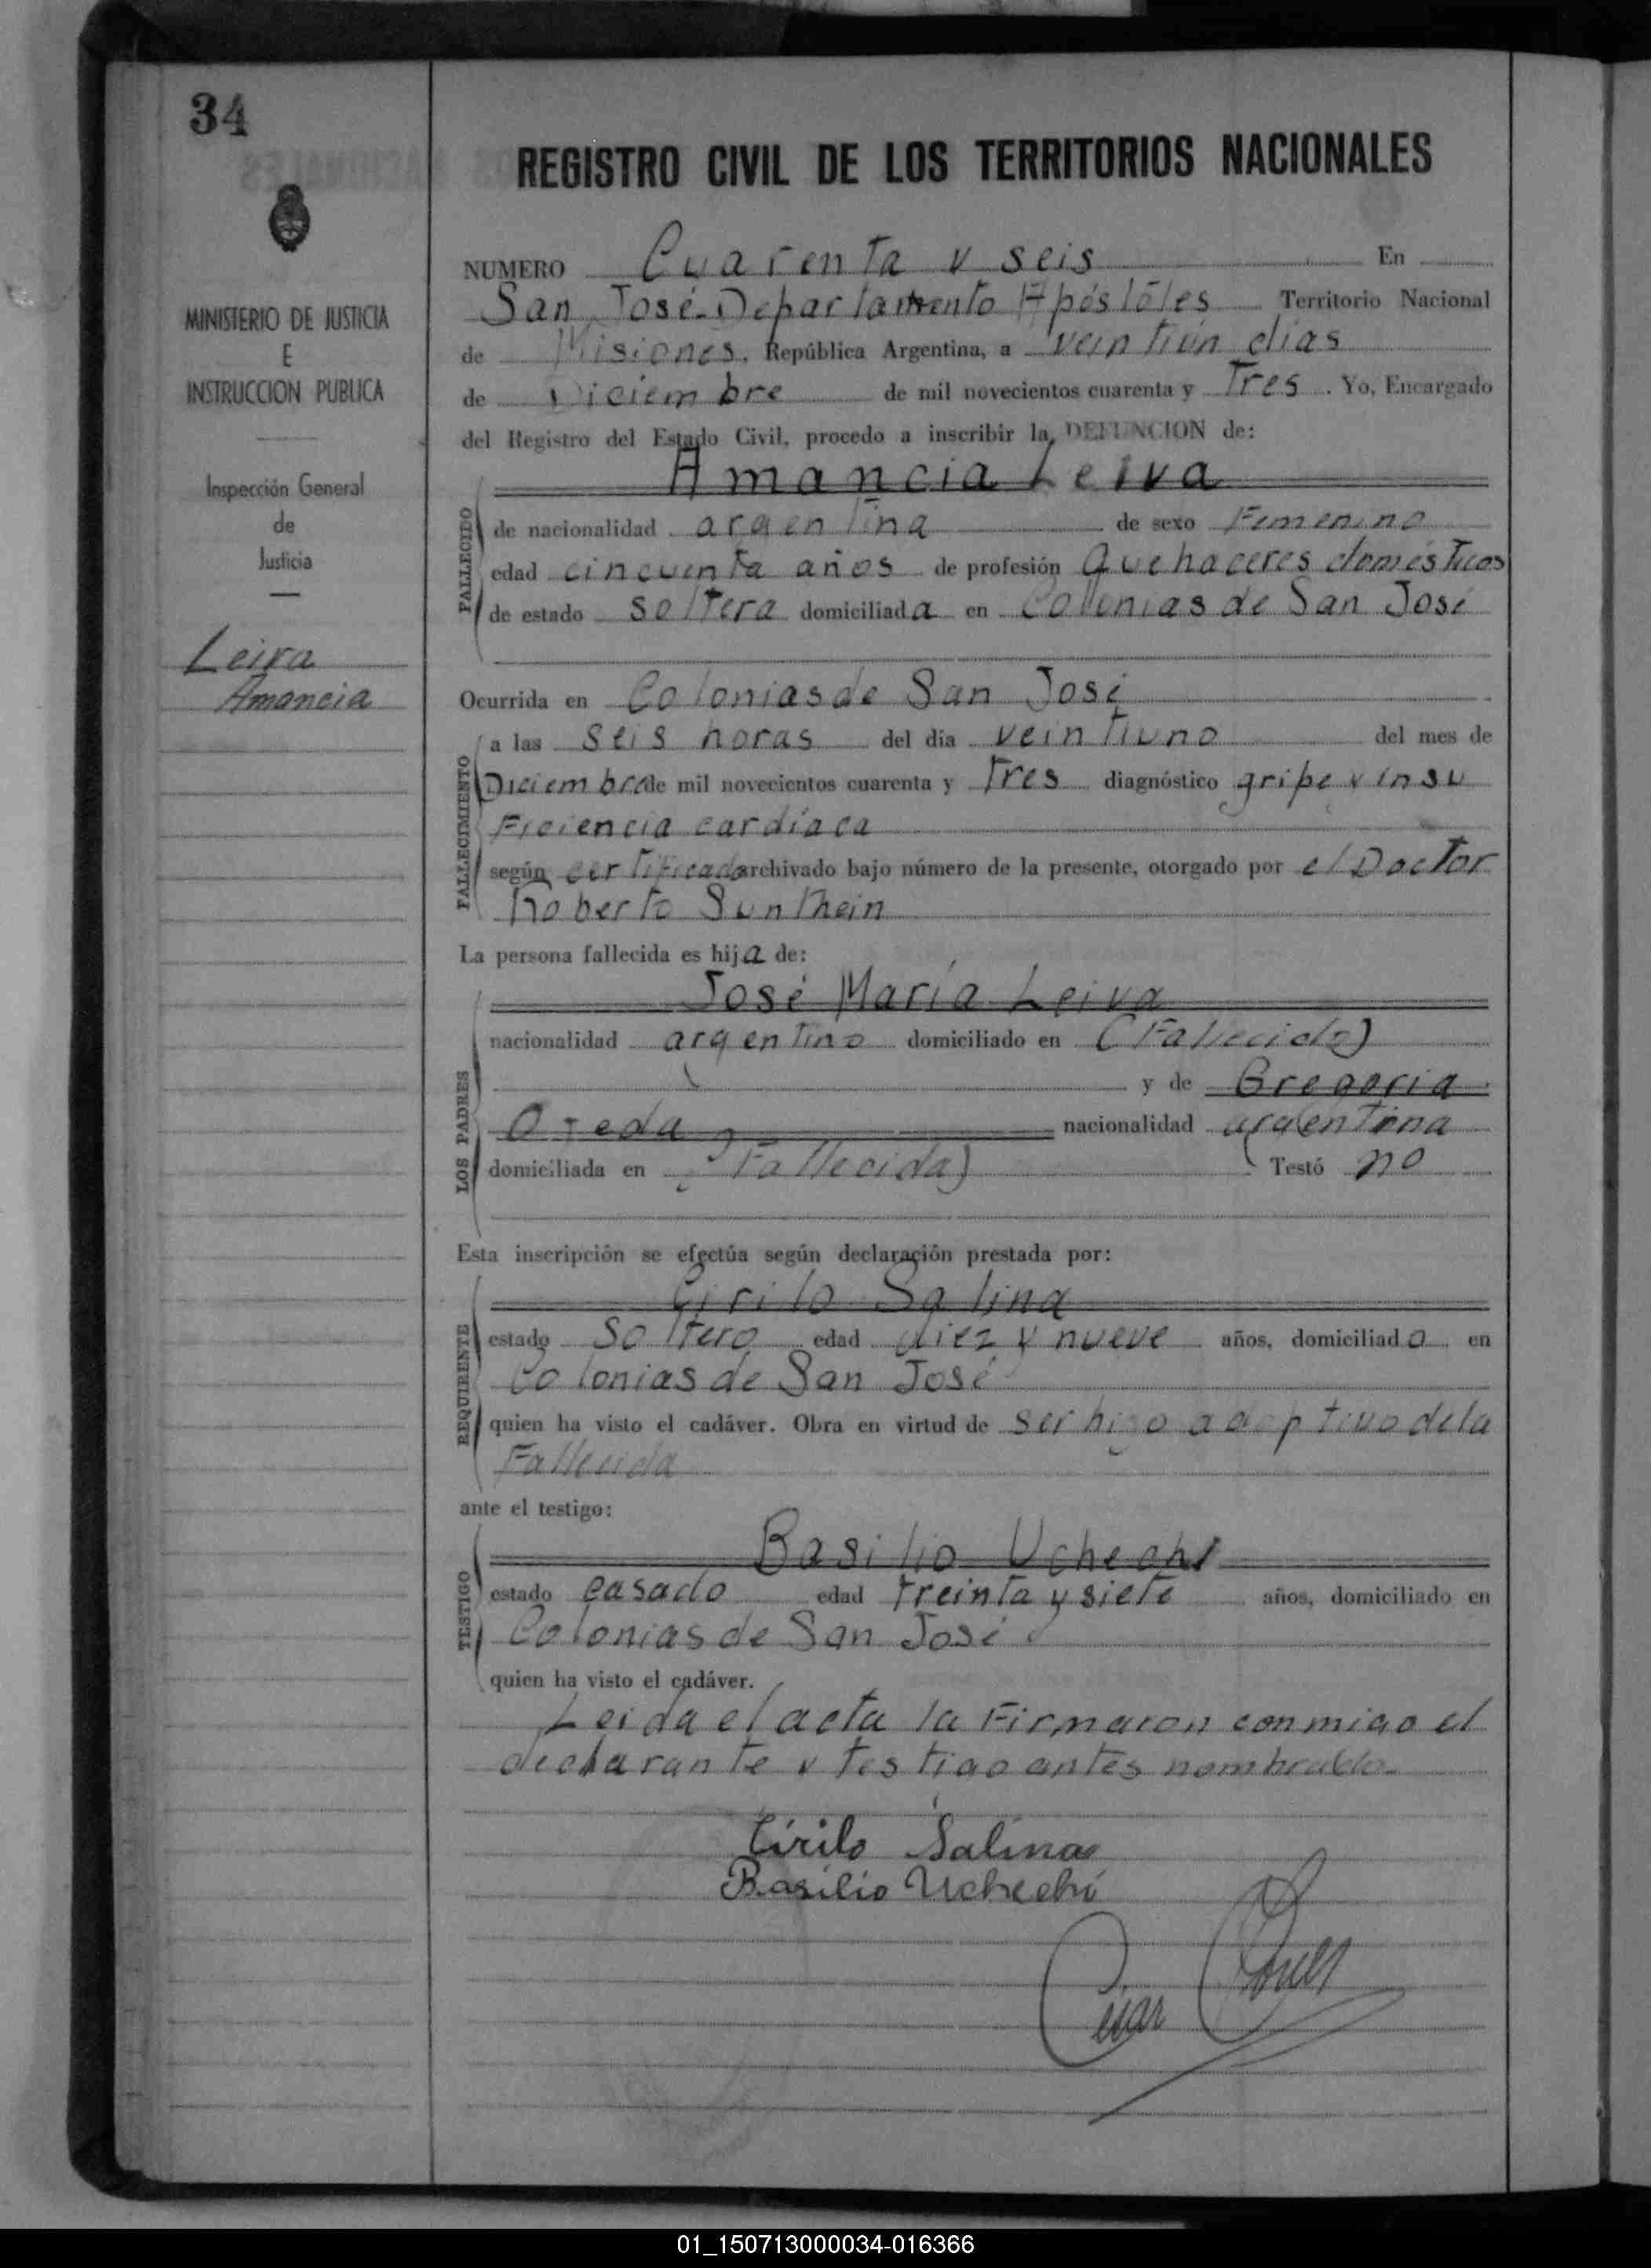 34
REGISTRO CIVIL DE LOS TERRITORIOS NACIONALES
MINISTERIO DE JUSTICIA
E
INSTRUCCION PUBLICA
Inspección General
de
Justicia
Leiva
Amancia
NUMERO Cuarenta y seis En
San José - Departamento Apóstoles Territorio Nacional
de Misiones, República Argentina, a veintiún días
de Diciembre de mil novecientos cuarenta y Tres. Yo, Encargado
del Registro del Estado Civil, procedo a inscribir la DEFUNCION de:
Amancia Leiva
FALLECIDO
de nacionalidad argentina de sexo Femenino
edad cincuenta años de profesión Quehaceres domésticos
de estado soltera domiciliada en Colonias de San José
Ocurrida en Colonias de San José
FALLECIMIENTO
a las seis horas del día veintiuno del mes de
Diciembre de mil novecientos cuarenta y Tres diagnóstico gripe y insu
Ficiencia cardíaca
según certificado archivado bajo número de la presente, otorgado por el Doctor
Roberto Sunthein
La persona fallecida es hija de:
José María Leiva
LOS PADRES
nacionalidad argentino domiciliado en (Fallecido)
y de Gregoria
Ojeda nacionalidad argentina
domiciliada en (Fallecida) Testó no
Esta inscripción se efectúa según declaración prestada por:
Cirilo Salina
REQUIRENTE
estado Soltero edad diez y nueve años, domiciliado en
Colonias de San José
quien ha visto el cadáver. Obra en virtud de ser hijo adoptivo de la
Fallecida
ante el testigo:
Basilio Uchechi
TESTIGO
estado casado edad treinta y siete años, domiciliado en
Colonias de San José
quien ha visto el cadáver.
Leida el acta la Firmaron conmigo el
declarante y testigo antes nombrado.
Cirilo Salina
Basilio Uchechi
Cesar
01_150713000034-016366